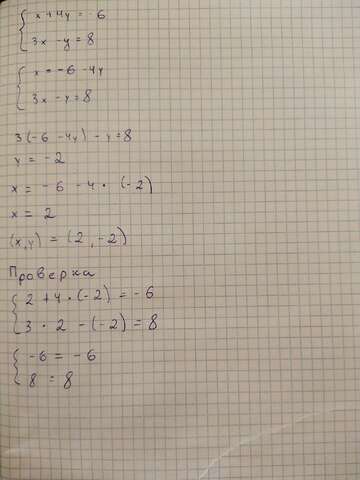 x + 4y = -6
3x - y = 8
x = -6 - 4y
3x - y = 8
3(-6 - 4y) - y = 8
y = -2
x = -6 - 4 · (-2)
x = 2
(x,y) = (2, -2)
Проверка
2 + 4 · (-2) = -6
3 · 2 - (-2) = 8
-6 = -6
8 = 8